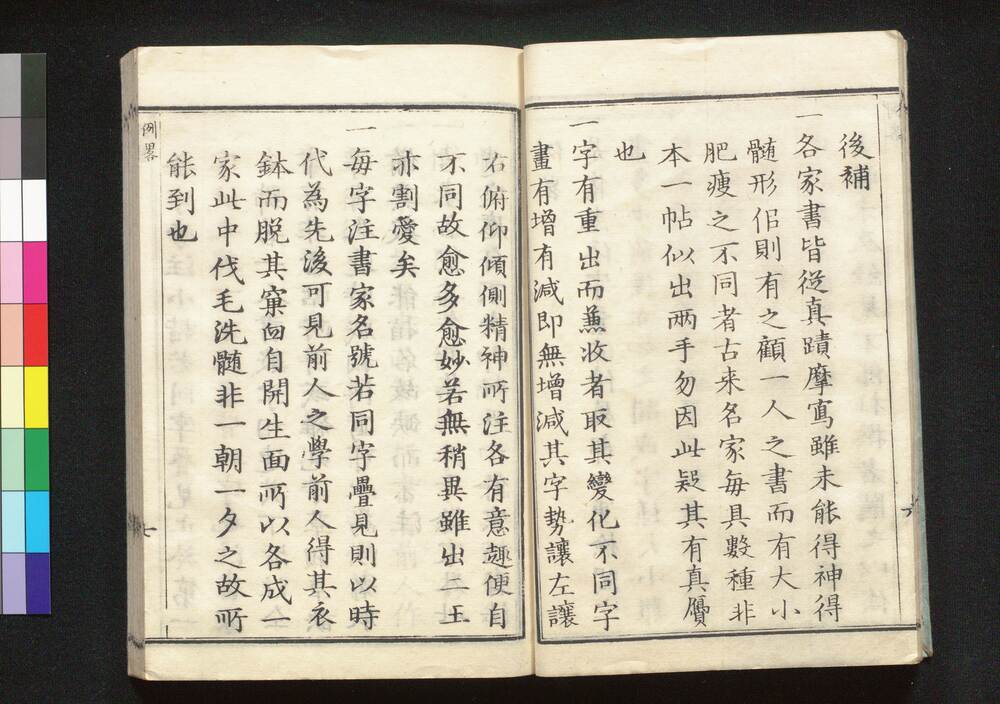 後補
一各家書皆從真蹟摩寫雖未能得神得
髄形佀則有之顧一人之書而有大小
肥瘦之不同者古来名家每具數種非
本一帖似出兩手勿因此疑其有真贋
也
一字有重出而兼收者取其變化不同字
畫有增有減即無增減其字勢讓左讓
右俯仰傾側精神所注各有意趣便自
不同故愈多愈妙若無稍異雖出二王
亦割愛矣
一每字注書家名號若同字疊見則以時
代為先後可見前人之學前人得其衣
鉢而脫其窠臼自開生面所以各成一
家此中伐毛洗髄非一朝一夕之故所
能到也
例畧
七
六